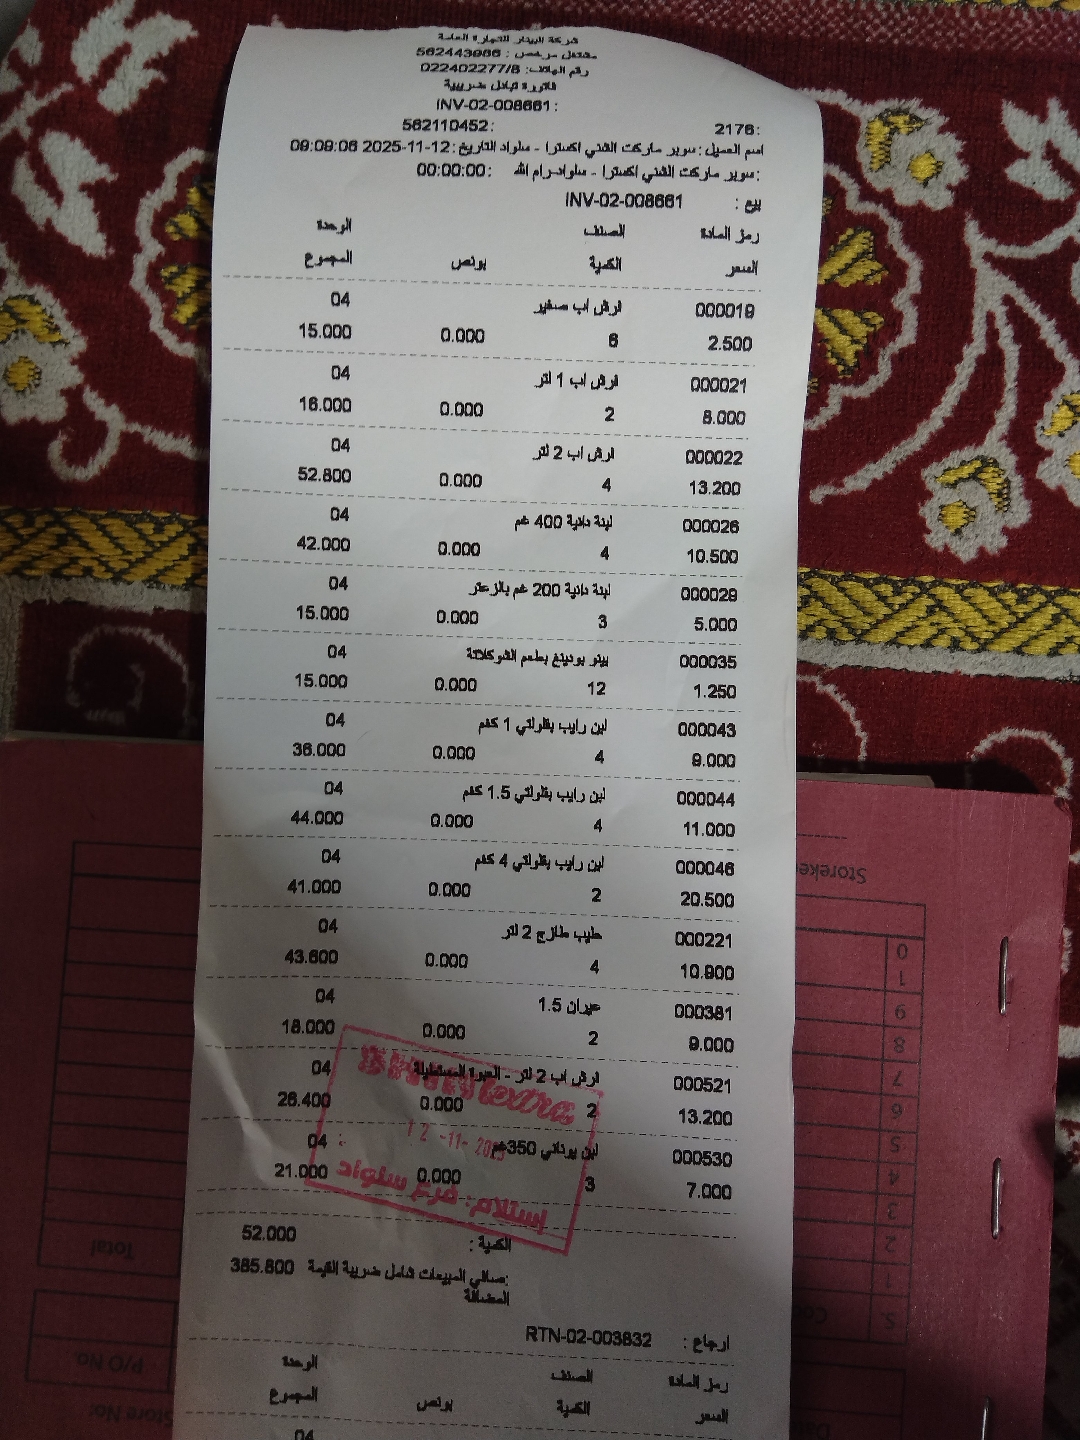 شركة البينار للتجارة العامة
مشتغل مرخص : 562443986
رقم الهاتف: 022402277/8
فاتورة تبادل ضريبية
INV-02-008661:
2176: 562110452:
اسم العميل : سوبر ماركت الشني اكسترا - سلواد التاريخ : 2025-11-12 09:09:06
:سوبر ماركت الشني اكسترا - سلواد-رام الله 00:00:00:
بيع : INV-02-008661
رمز المادة الصنف الوحدة
السعر الكمية بونص المجموع
000019 فرش اب صغير 04
2.500 6 0.000 15.000
000021 فرش اب 1 لتر 04
8.000 2 0.000 16.000
000022 فرش اب 2 لتر 04
13.200 4 0.000 52.800
000026 لبنة دانية 400 غم 04
10.500 4 0.000 42.000
000029 لبنة دانية 200 غم بالزعتر 04
5.000 3 0.000 15.000
000035 بينو بودينغ بطعم الشوكلاتة 04
1.250 12 0.000 15.000
000043 لبن رايب بقلولتي 1 كغم 04
9.000 4 0.000 36.000
000044 لبن رايب بقلولتي 1.5 كغم 04
11.000 4 0.000 44.000
000046 لبن رايب بقلولتي 4 كغم 04
20.500 2 0.000 41.000
000221 حليب طازج 2 لتر 04
10.900 4 0.000 43.600
000381 عيران 1.5 04
9.000 2 0.000 18.000
000521 فرش اب 2 لتر - العبوة المستطيلة 04
13.200 2 0.000 26.400
000530 لبن يوناني 350غم 04
7.000 3 0.000 21.000
extra
12 -11- 2025
استلام: فرع سلواد
الكمية : 52.000
:صافي المبيعات شامل ضريبة القيمة 385.800
المضافة
ارجاع : RTN-02-003832
رمز المادة الصنف الوحدة
السعر الكمية بونص المجموع
04
Storeke
0
1
9
8
7
6
5
4
3
2
1
S.
Total
P/O No.
Store No: